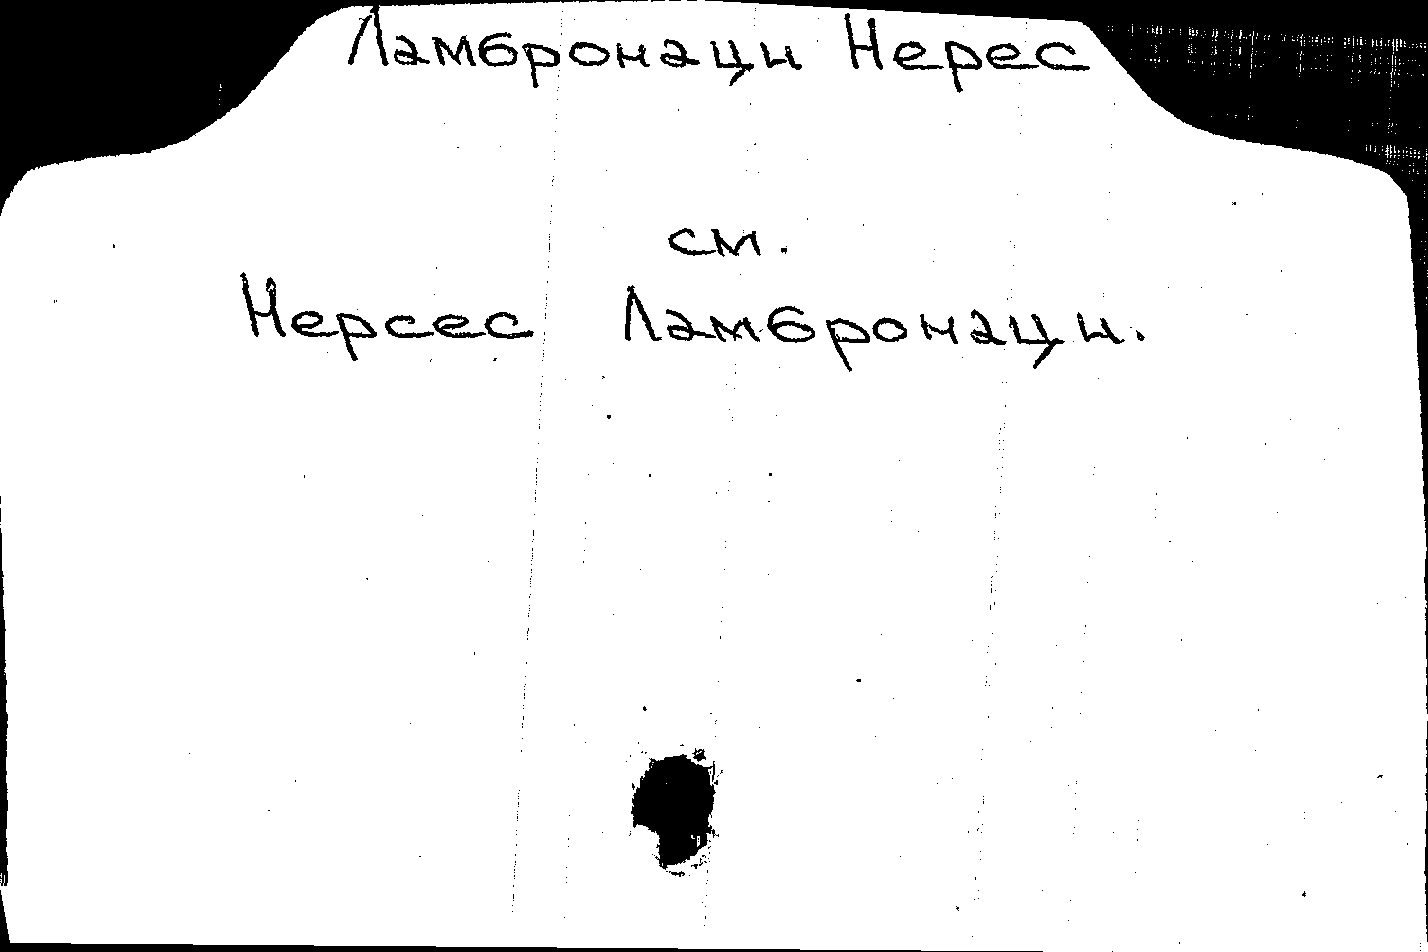 Ламбронаци Нерес
см.
Нерсес Ламбронаци.